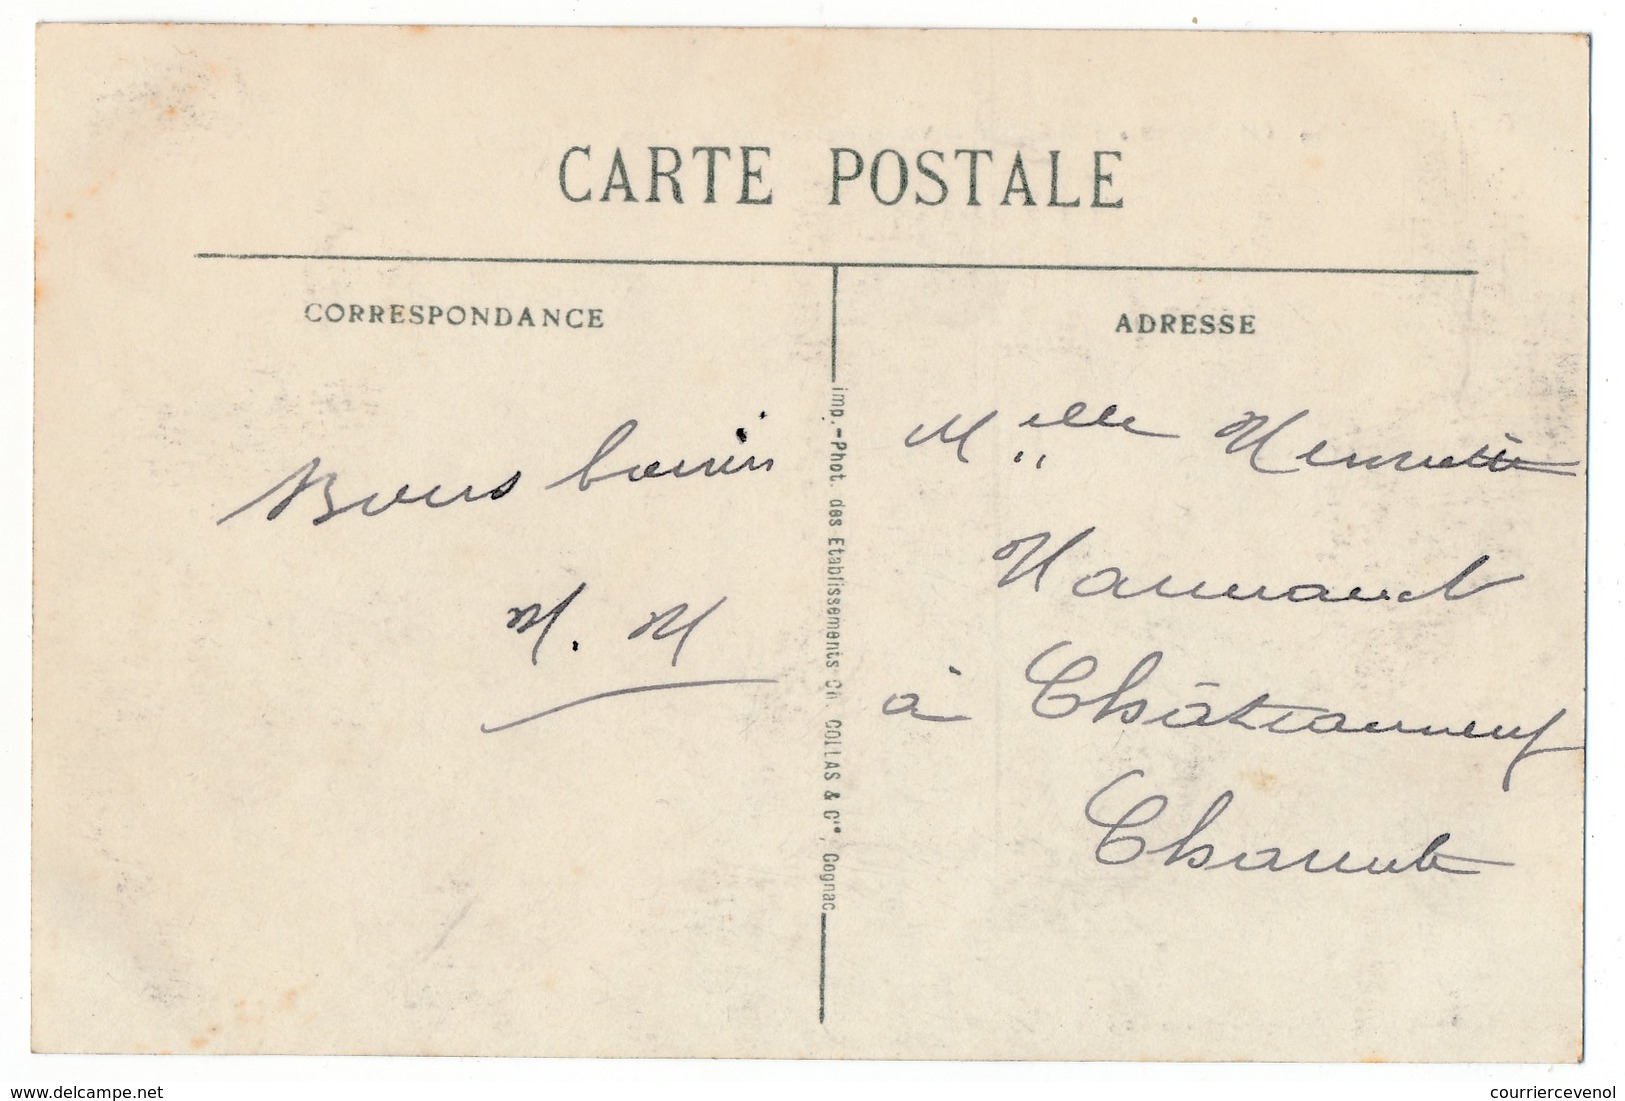 CARTE POSTALE
CORRESPONDANCE
ADRESSE
Bons baisers
H. H
Imp.-Phot. des Etablissements Ch. COLLAS & Cie, Cognac
Melle Henriette
à Châteauneuf
Charente
delcampe.net
courriercevenol